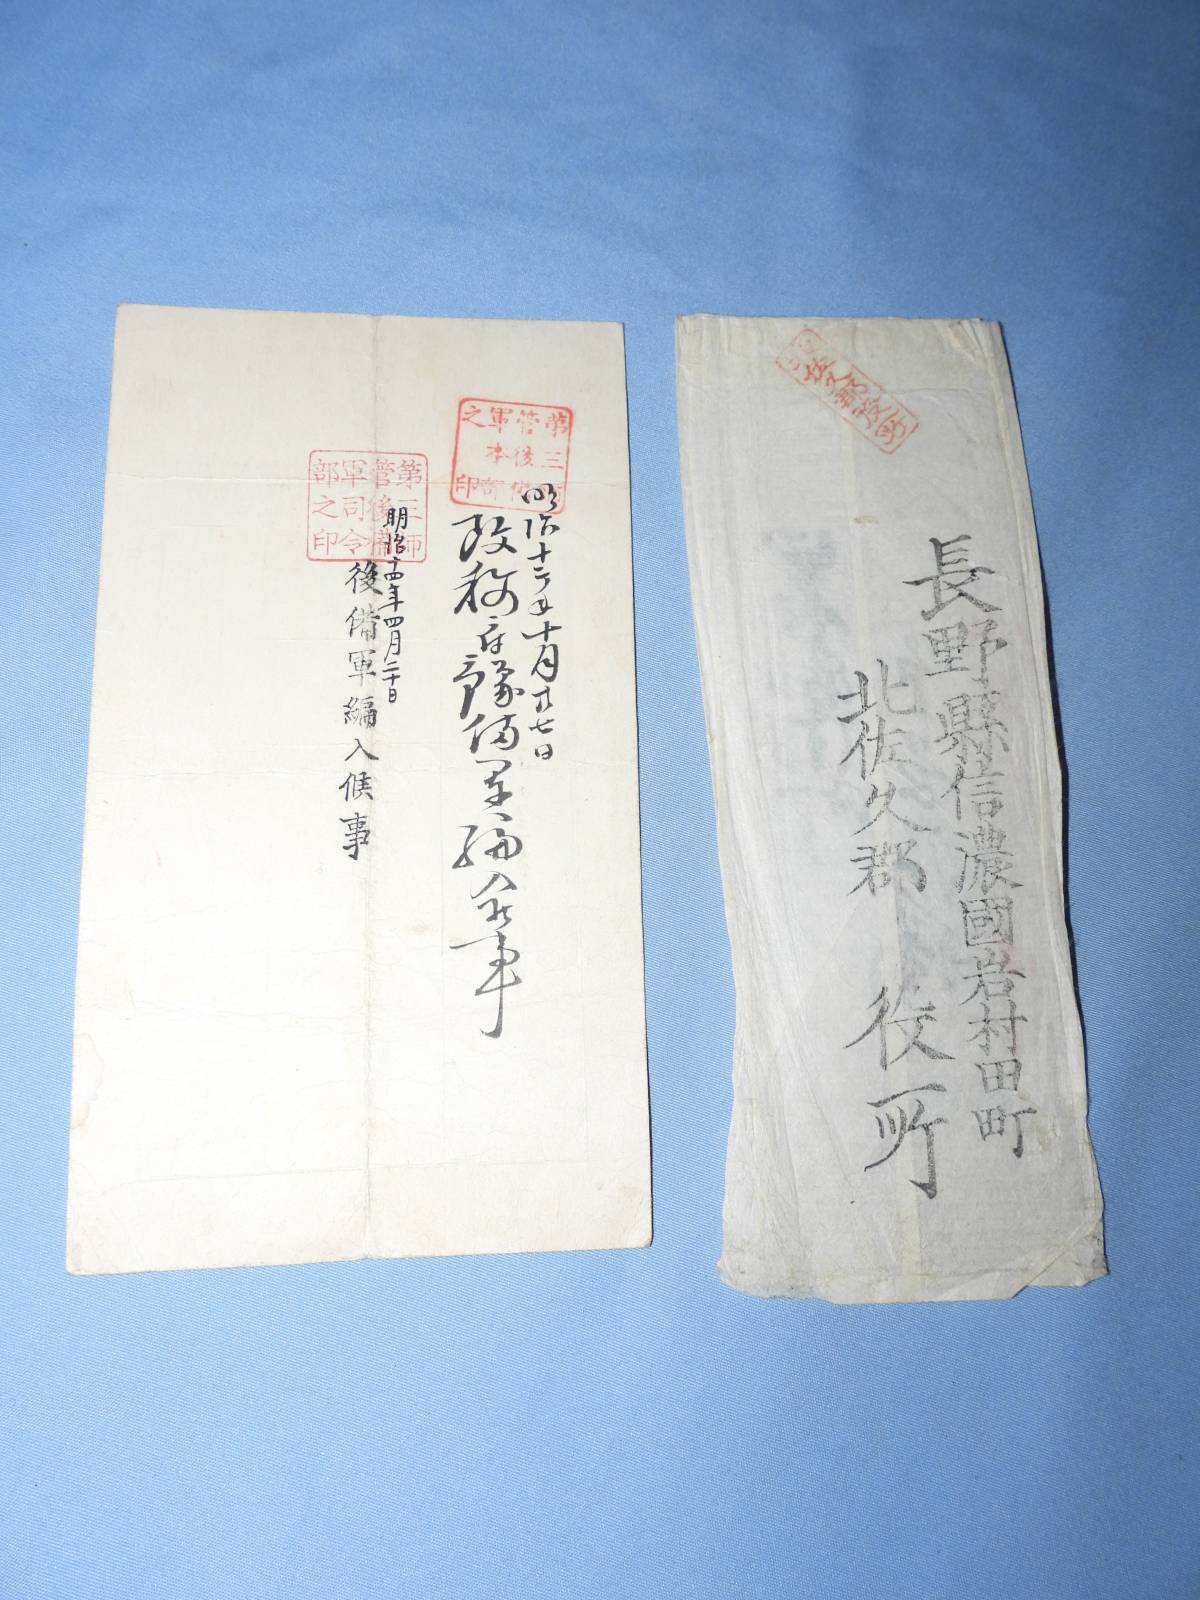 第三
管後備
軍本部
之印
明治十二年十月廿七日
改称
予備軍編入候事
第三師
管後備
軍司令
部之印
明治十四年四月二十日
後備軍編入候事
長野縣信濃國岩村田町
北佐久郡 役所